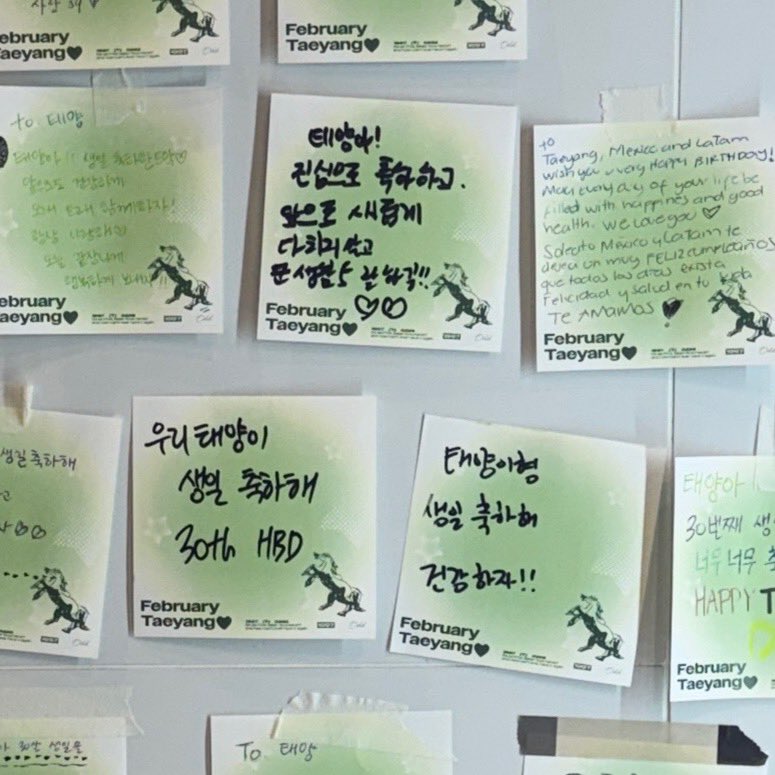 February
Taeyang♥
February
Taeyang♥
to 태양
태양아!! 생일 축하한다앙♡
앞으로도 건강하게
오래 오래 함께하자!
항상 사랑해
오늘
행복하게 보내
February
Taeyang♥
태양아!
진심으로 축하하고.
앞으로 새롭게
다치지 않고
♡♡
February
Taeyang♥
to
Taeyang, Mexico and LaTam
wish you a very Happy BIRTHDAY!
May every day of your life be
filled with happines and good
health. We love you ♡
México y LaTam te
desea un muy FELIZ cumpleaños
que todos los días exista
Felicidad y salud en tu
Te AMAMOS
February
Taeyang♥
생일축하해
고
우리 태양이
생일 축하해
30th HBD
February
Taeyang♥
태양이형
생일 축하해
건강하자!!
February
Taeyang♥
태양아
30번째 생
너무너무 축
HAPPY T
February
Taeyang♥
To 태양